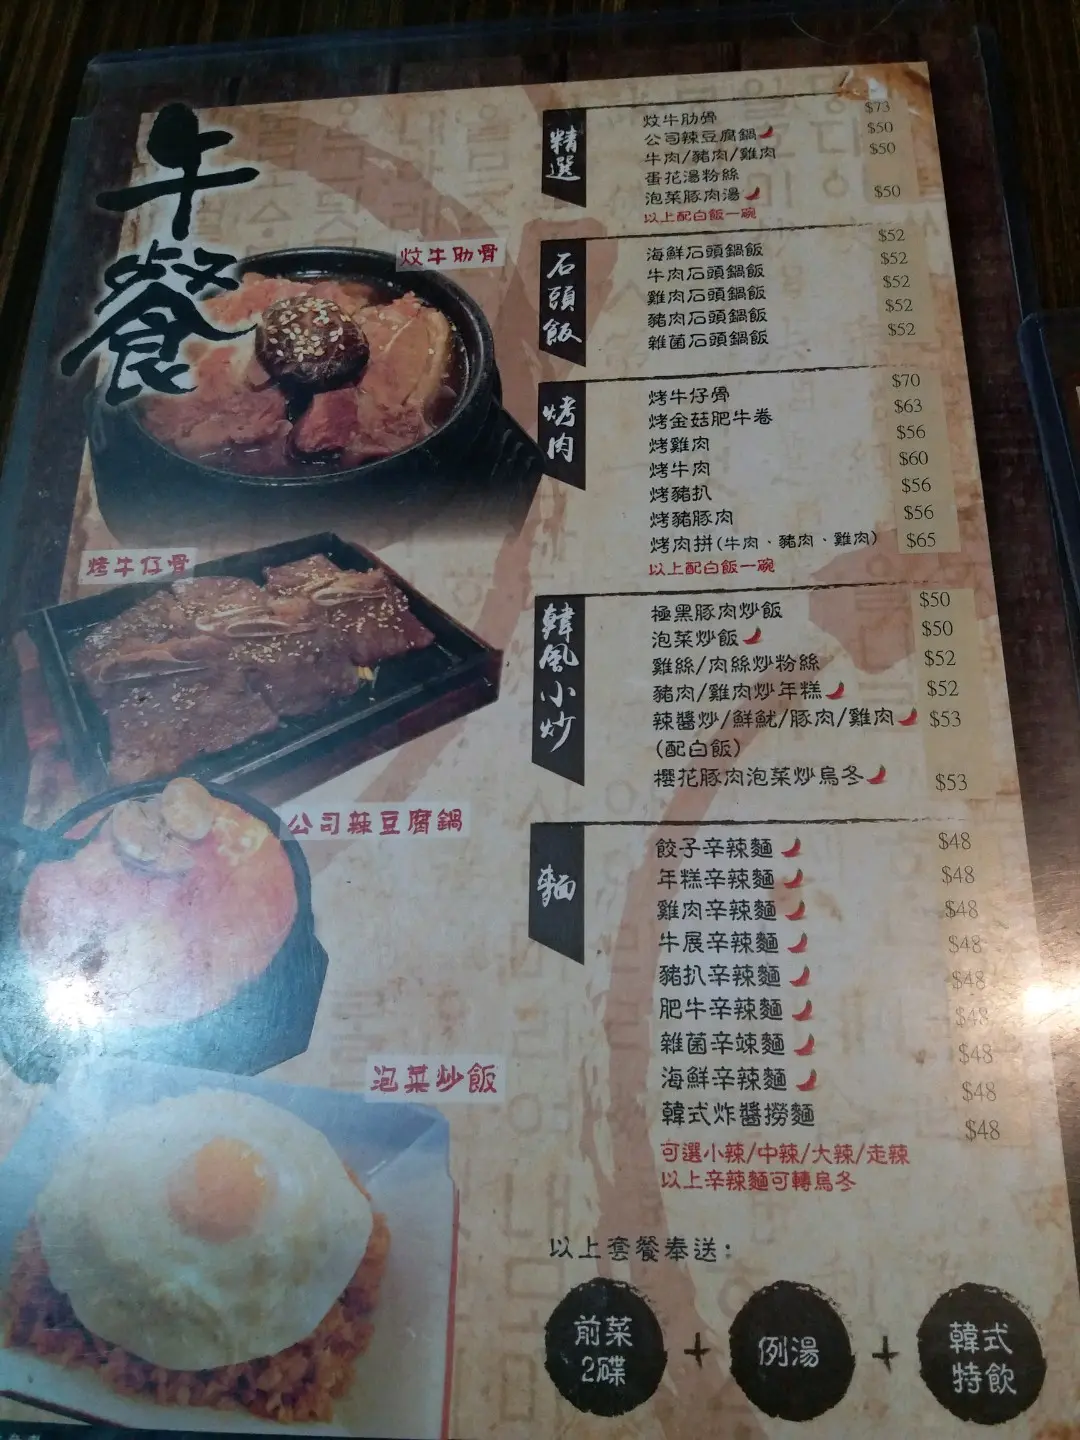 午餐
炆牛肋骨
烤牛仔骨
公司辣豆腐鍋
泡菜炒飯
精選
炆牛肋骨 $73
公司辣豆腐鍋 $50
牛肉/豬肉/雞肉 $50
蛋花湯粉絲
泡菜豚肉湯 $50
以上配白飯一碗
石頭飯
海鮮石頭鍋飯 $52
牛肉石頭鍋飯 $52
雞肉石頭鍋飯 $52
豬肉石頭鍋飯 $52
雜菌石頭鍋飯 $52
烤肉
烤牛仔骨 $70
烤金菇肥牛卷 $63
烤雞肉 $56
烤牛肉 $60
烤豬扒 $56
烤豬豚肉 $56
烤肉拼(牛肉、豬肉、雞肉) $65
以上配白飯一碗
韓風小炒
極黑豚肉炒飯 $50
泡菜炒飯 $50
雞絲/肉絲炒粉絲 $52
豬肉/雞肉炒年糕 $52
辣醬炒/鮮魷/豚肉/雞肉 $53
(配白飯)
櫻花豚肉泡菜炒烏冬 $53
麵
餃子辛辣麵 $48
年糕辛辣麵 $48
雞肉辛辣麵 $48
牛展辛辣麵 $48
豬扒辛辣麵 $48
肥牛辛辣麵 $48
雜菌辛竦麵 $48
海鮮辛辣麵 $48
韓式炸醬撈麵 $48
可選小辣/中辣/大辣/走辣
以上辛辣麵可轉烏冬
以上套餐奉送:
前菜
2碟
+
例湯
+
韓式
特飲